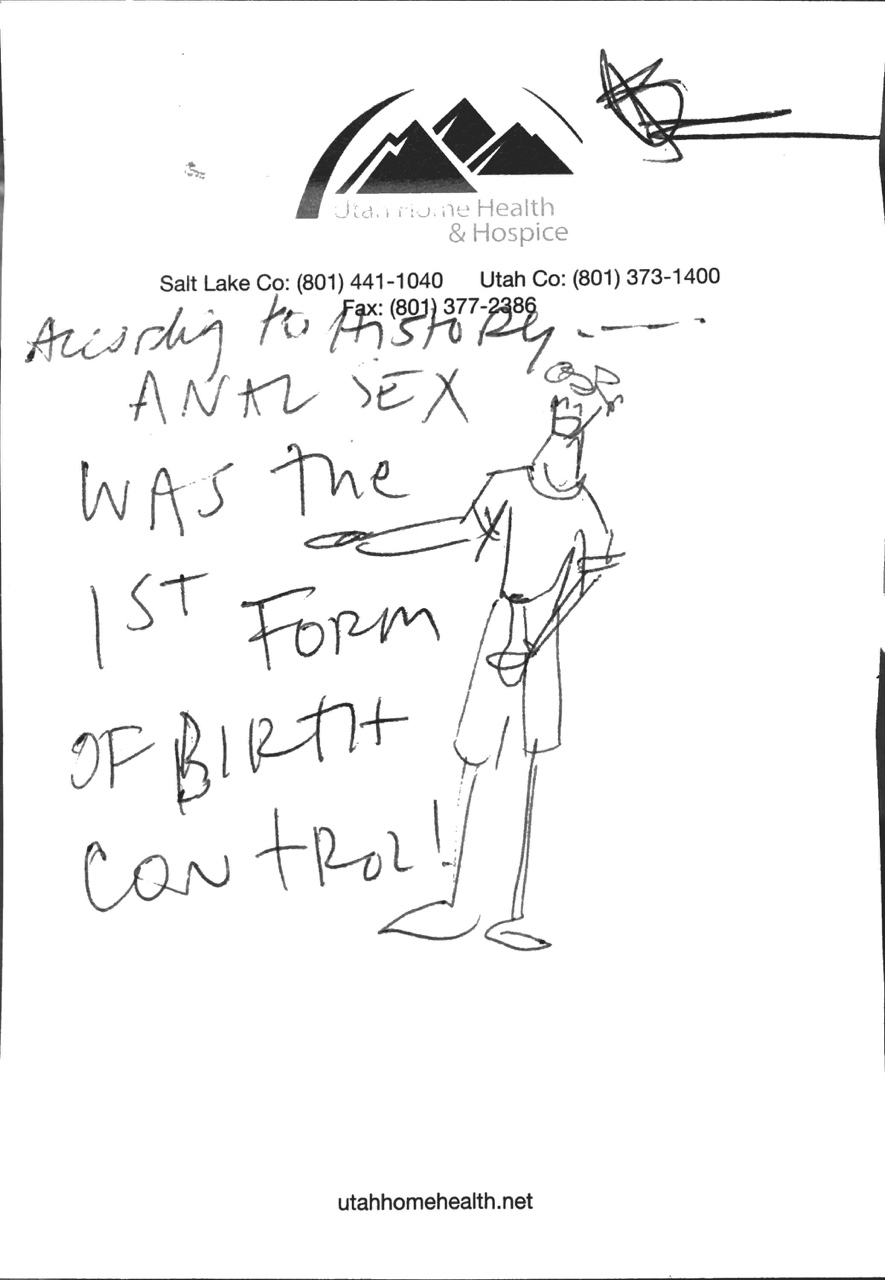 Utah Home Health
& Hospice
Salt Lake Co: (801) 441-1040 Utah Co: (801) 373-1400
Fax: (801) 377-2386
According to History.——.
ANAL SEX
WAS the
1ST FORM
OF BIRTH
CONTROL!
utahhomehealth.net